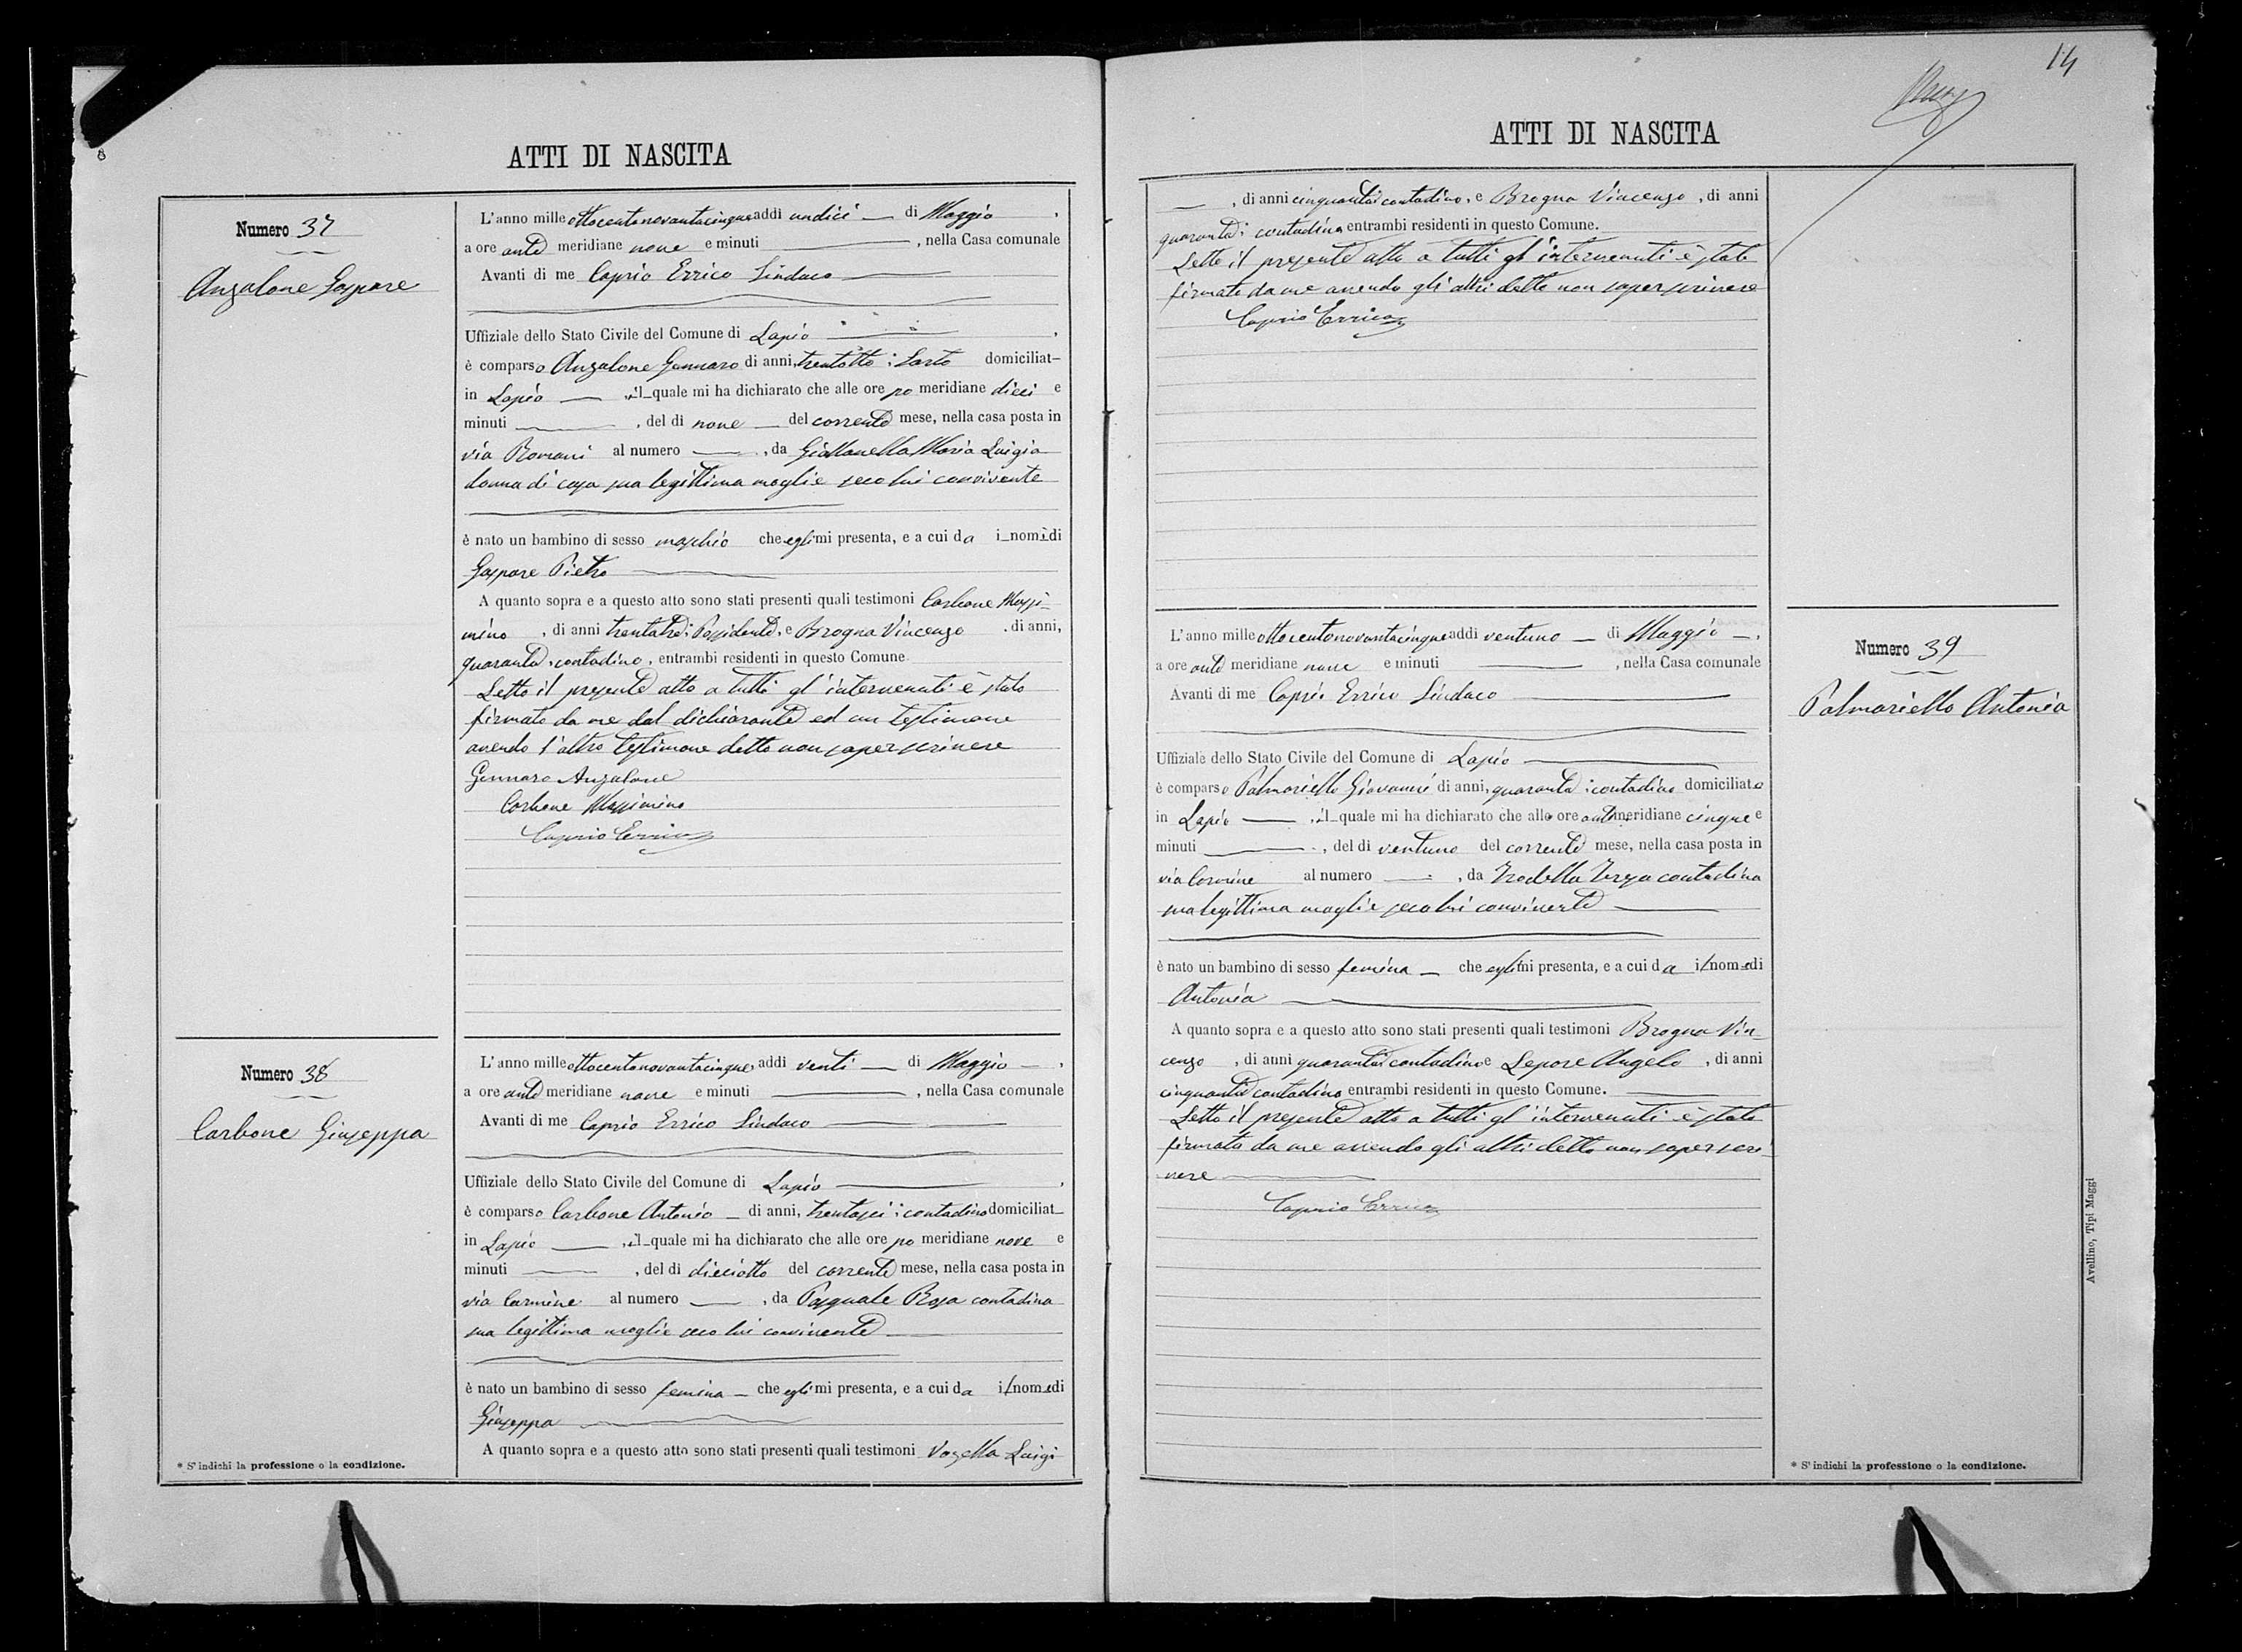 14
ATTI DI NASCITA
Numero 37
Anzalone Gaspare
L'anno mille ottocentonovantacinque addì undici di Maggio,
a ore ante meridiane nove e minuti , nella Casa comunale
Avanti di me Caprio Errico Sindaco
Uffiziale dello Stato Civile del Comune di Lapio ,
è comparso Anzalone Gennaro di anni, trentotto; Sarto domiciliat
in Lapio , il quale mi ha dichiarato che alle ore po meridiane dieci e
minuti , del dì nove del corrente mese, nella casa posta in
via Romani al numero , da Giallanella Maria Luigia
donna di casa sua legittima moglie seco lui convivente
è nato un bambino di sesso maschio che egli mi presenta, e a cui da i nomi di
Gaspare Pietro
A quanto sopra e a questo atto sono stati presenti quali testimoni Carbone Massi-
mino , di anni trentatre; Possidente, e Brogna Vincenzo , di anni,
quaranta, contadino, entrambi residenti in questo Comune
Letto il presente atto a tutti gl'intervenuti è stato
firmato da me dal dichiarante ed un testimone
avendo l'altro testimone detto non saper scrivere
Gennaro Anzalone
Carbone Massimino
Caprio Errico
Numero 38
Carbone Giuseppa
L'anno mille ottocentonovantacinque, addì venti di Maggio ,
a ore ante meridiane nove e minuti , nella Casa comunale
Avanti di me Caprio Errico Sindaco
Uffiziale dello Stato Civile del Comune di Lapio ,
è comparso Carbone Antonio di anni, trentasei; contadino domiciliat
in Lapio , il quale mi ha dichiarato che alle ore po meridiane nove e
minuti , del dì dieciotto del corrente mese, nella casa posta in
via Carmine al numero , da Pasquale Rosa contadina
sua legittima moglie seco lui convivente
è nato un bambino di sesso femina che egli mi presenta, e a cui da il nome di
Giuseppa
A quanto sopra e a questo atto sono stati presenti quali testimoni Vozella Luigi
* S'indichi la professione o la condizione.
ATTI DI NASCITA
, di anni cinquanta; contadino, e Brogna Vincenzo , di anni
quaranta; contadino entrambi residenti in questo Comune.
Letto il presente atto a tutti gl'intervenuti è stato
firmato da me avendo gli altri detto non saper scrivere
Caprio Errico
Numero 39
Palmariello Antonia
L'anno mille ottocentonovantacinque addì ventuno di Maggio ,
a ore ante meridiane nove e minuti , nella Casa comunale
Avanti di me Caprio Errico Sindaco
Uffiziale dello Stato Civile del Comune di Lapio
è comparso Palmariello Giovanni di anni, quaranta; contadino domiciliato
in Lapio , il quale mi ha dichiarato che alle ore ante meridiane cinque e
minuti , del dì ventuno del corrente mese, nella casa posta in
via Carmine al numero , da contadina
sua legittima moglie seco lui convivente
è nato un bambino di sesso femina che egli mi presenta, e a cui da il nome di
Antonia
A quanto sopra e a questo atto sono stati presenti quali testimoni Brogna Vin-
cenzo , di anni quaranta contadino e Lepore Angelo , di anni
cinquanta contadino entrambi residenti in questo Comune.
Letto il presente atto a tutti gl'intervenuti è stato
firmato da me avendo gli altri detto non saper scri-
vere
Caprio Errico
* S'indichi la professione o la condizione.
Avellino, Tipi Maggi